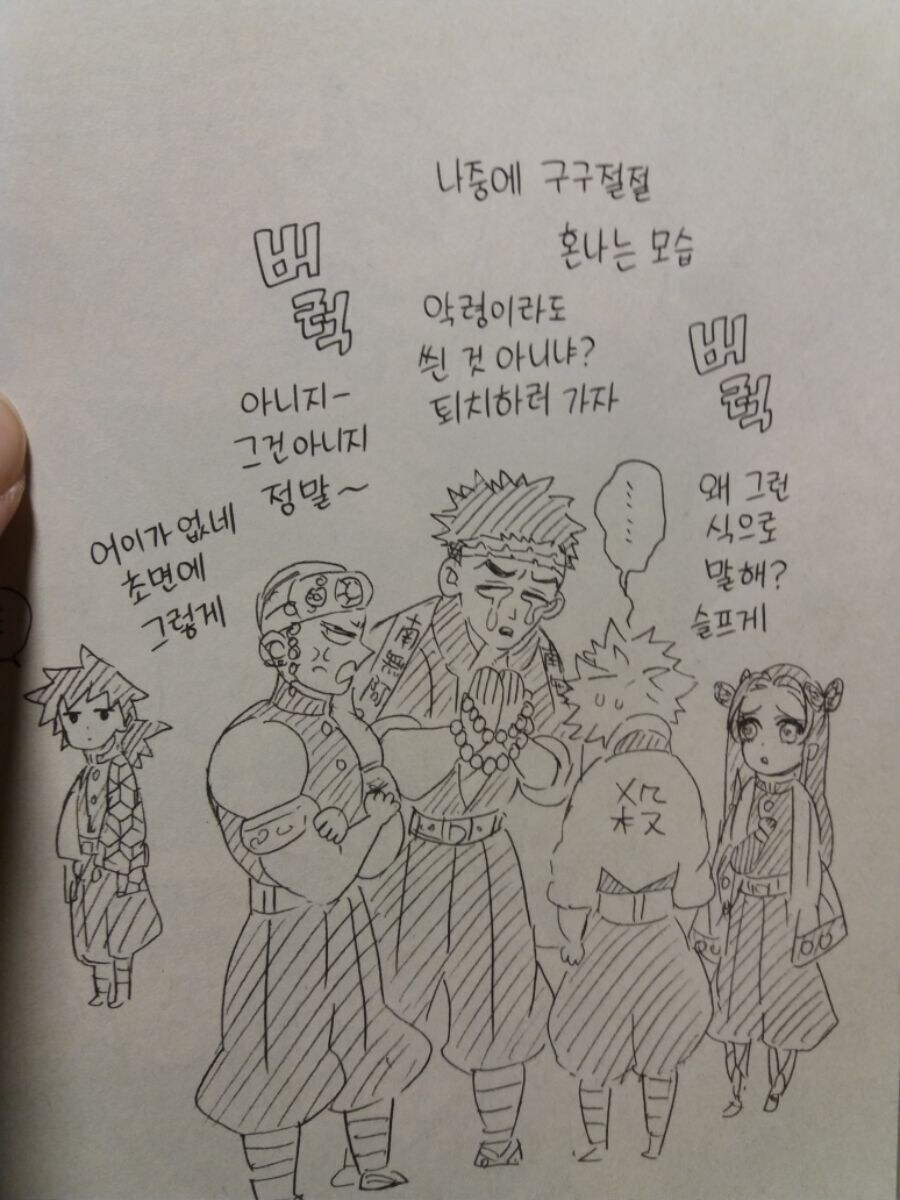 나중에 구구절절
혼나는 모습
버
럭
악령이라도
씐 것 아니냐?
퇴치하러 가자
버
럭
아니지-
그건아니지
정말~
왜 그런
식으로
말해?
슬프게
어이가 없네
초면에
그렇게
殺